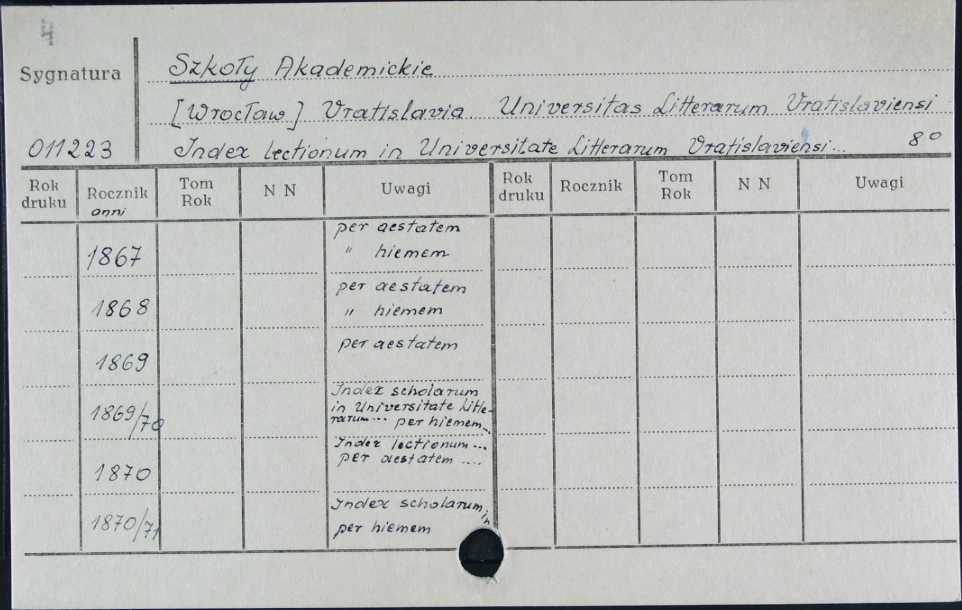 Sygnatura
Szkoły Akademickie
[Wrocław] Vratislavia Universitas Litterarum Vratislaviensi
011223
Index lectionum in Universitate Litterarum Vratislaviensi... 8°
Rok druku
Rocznik
anni
Tom Rok
N N
Uwagi
Rok druku
Rocznik
Tom Rok
N N
Uwagi
1867
per aestatem
" hiemem
1868
per aestatem
" hiemem
1869
per aestatem
1869/70
Index scholarum
in Universitate Litte-
rarum... per hiemem..
1870
Index lectionum...
per aestatem ....
1870/71
Index scholarum in
per hiemem